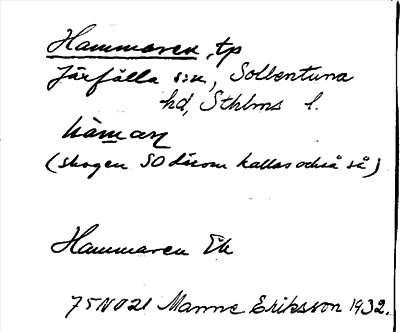 Hammaren, tp
Järfälla s:n, Sollentuna
hd, Sthlms l.
(skogen SO därom kallas också så)
Hammaren Ek
75NO21 Manne Eriksson 1932.